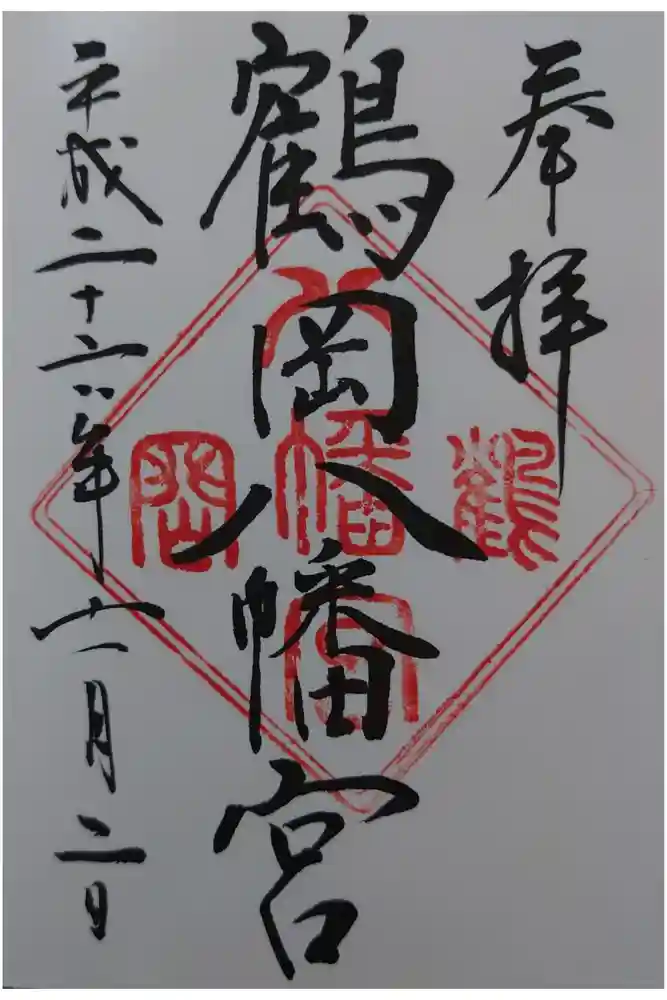 奉拝
鶴岡八幡宮
平成二十六年十一月二日
鶴
八幡宮
岡